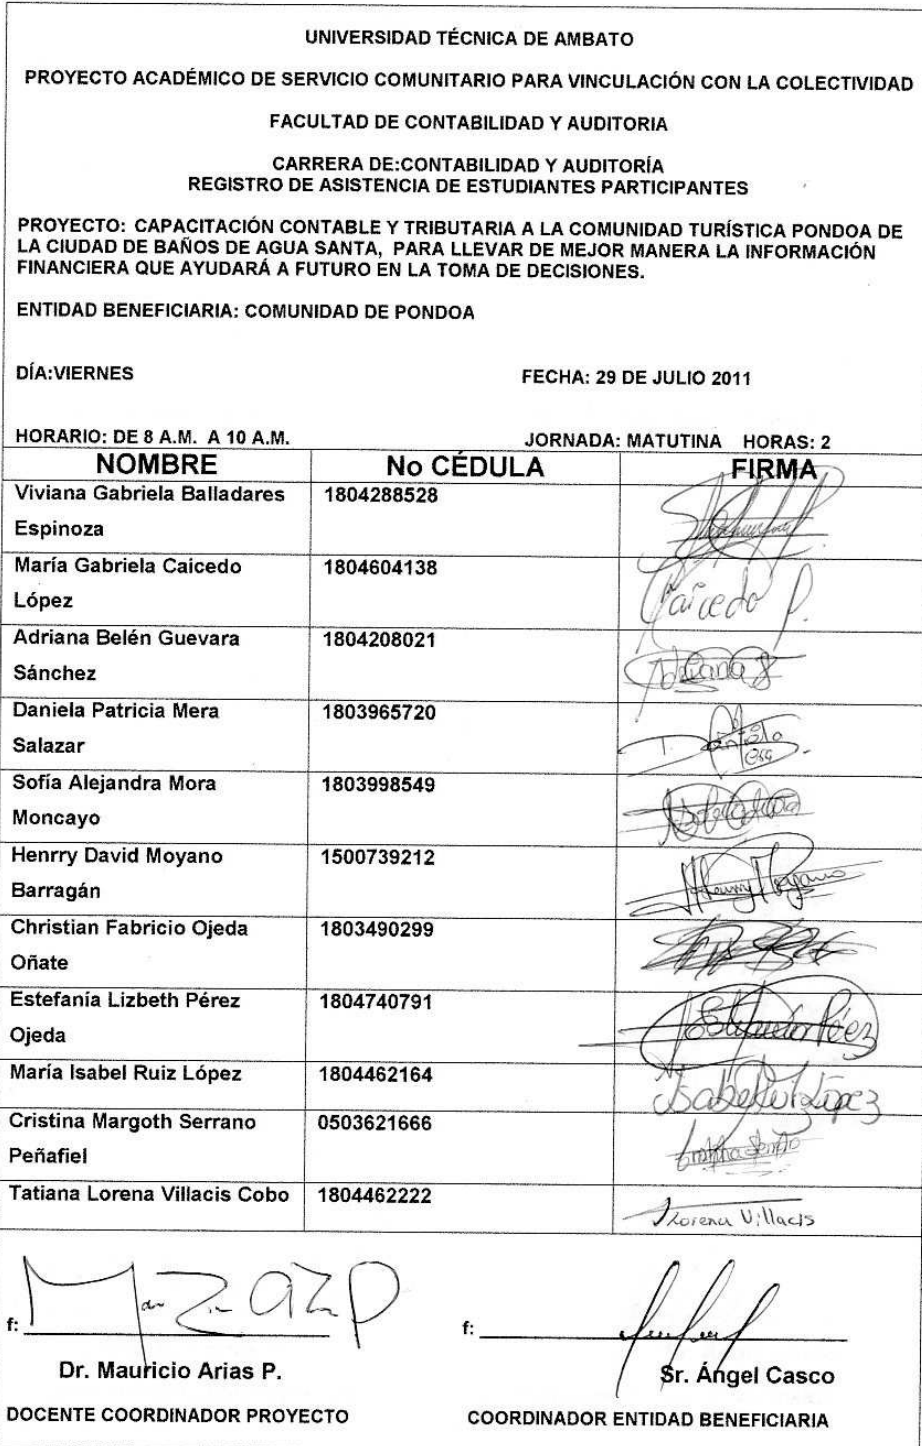 UNIVERSIDAD TÉCNICA DE AMBATO
PROYECTO ACADÉMICO DE SERVICIO COMUNITARIO PARA VINCULACIÓN CON LA COLECTIVIDAD
FACULTAD DE CONTABILIDAD Y AUDITORIA
CARRERA DE:CONTABILIDAD Y AUDITORÍA
REGISTRO DE ASISTENCIA DE ESTUDIANTES PARTICIPANTES
PROYECTO: CAPACITACIÓN CONTABLE Y TRIBUTARIA A LA COMUNIDAD TURÍSTICA PONDOA DE
LA CIUDAD DE BAÑOS DE AGUA SANTA, PARA LLEVAR DE MEJOR MANERA LA INFORMACIÓN
FINANCIERA QUE AYUDARÁ A FUTURO EN LA TOMA DE DECISIONES.
ENTIDAD BENEFICIARIA: COMUNIDAD DE PONDOA
DÍA:VIERNES FECHA: 29 DE JULIO 2011
HORARIO: DE 8 A.M. A 10 A.M. JORNADA: MATUTINA HORAS: 2
NOMBRE No CÉDULA FIRMA
Viviana Gabriela Balladares 1804288528
Espinoza
María Gabriela Caicedo 1804604138
López Caicedo
Adriana Belén Guevara 1804208021
Sánchez Adriana
Daniela Patricia Mera 1803965720
Salazar
Sofía Alejandra Mora 1803998549
Moncayo
Henrry David Moyano 1500739212
Barragán Henrry Moyano
Christian Fabricio Ojeda 1803490299
Oñate
Estefanía Lizbeth Pérez 1804740791
Ojeda Estefanía Pérez
María Isabel Ruiz López 1804462164 Isabel Ruiz López
Cristina Margoth Serrano 0503621666
Peñafiel Cristina Serrano
Tatiana Lorena Villacis Cobo 1804462222 Lorena Villacis
f: f:
Dr. Mauricio Arias P. Sr. Ángel Casco
DOCENTE COORDINADOR PROYECTO COORDINADOR ENTIDAD BENEFICIARIA